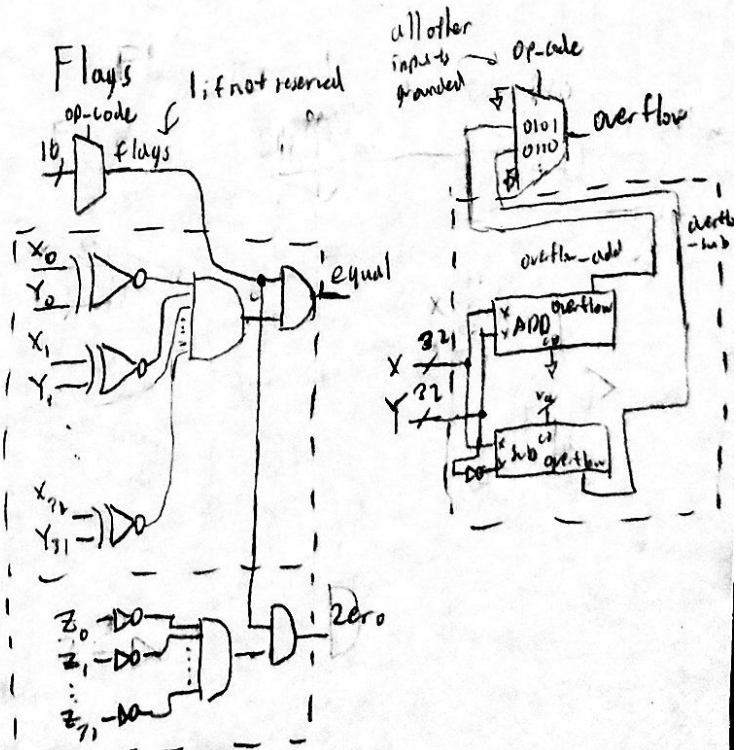 Flags
1 if not reserved
op-code
16
flags
X0
Y0
X1
Y1
Y31
equal
Z0
Z1
Z31
Zero
all other
inputs
grounded
op-code
0101
0110
overflow
overflow
-sub
overflow-add
X 32
Y 32
X
Y
ADD
overflow
X
sub
overflow